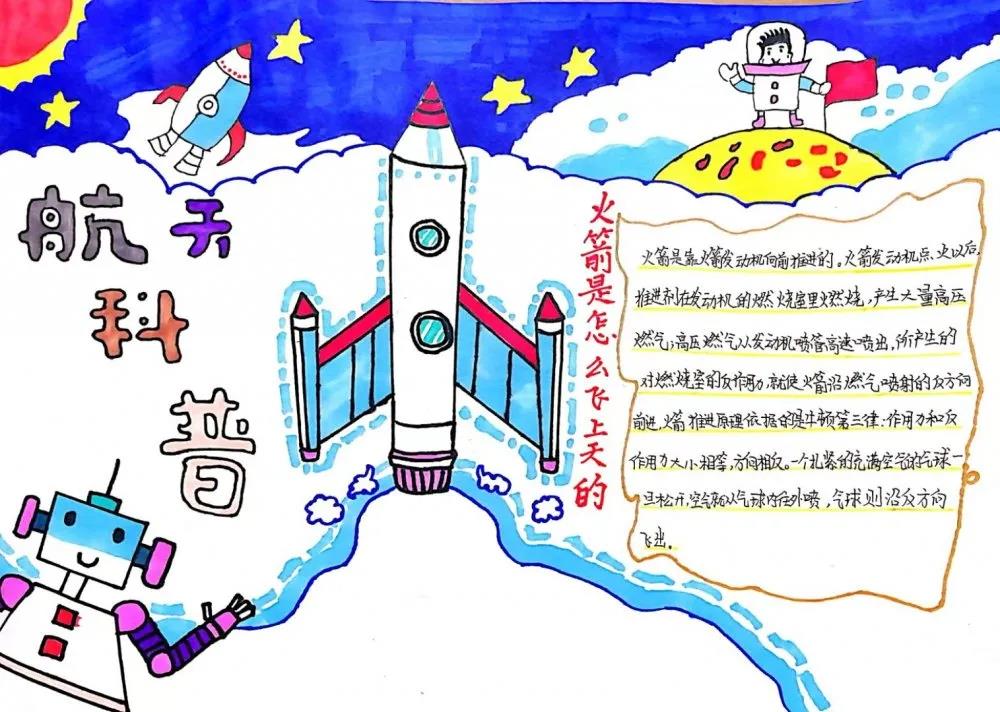 航天
科
普
火箭是怎么飞上天的
火箭是靠火箭发动机向前推进的。火箭发动机点火以后,
推进剂在发动机的燃烧室里燃烧,产生大量高压
燃气;高压燃气从发动机喷管高速喷出,所产生的
对燃烧室的反作用力,就使火箭沿燃气喷射的反方向
前进,火箭推进原理依据的是牛顿第三律:作用力和反
作用力大小相等,方向相反。一个扎紧的充满空气的气球一
旦松开,空气就从气球内往外喷,气球则沿反方向
飞出。